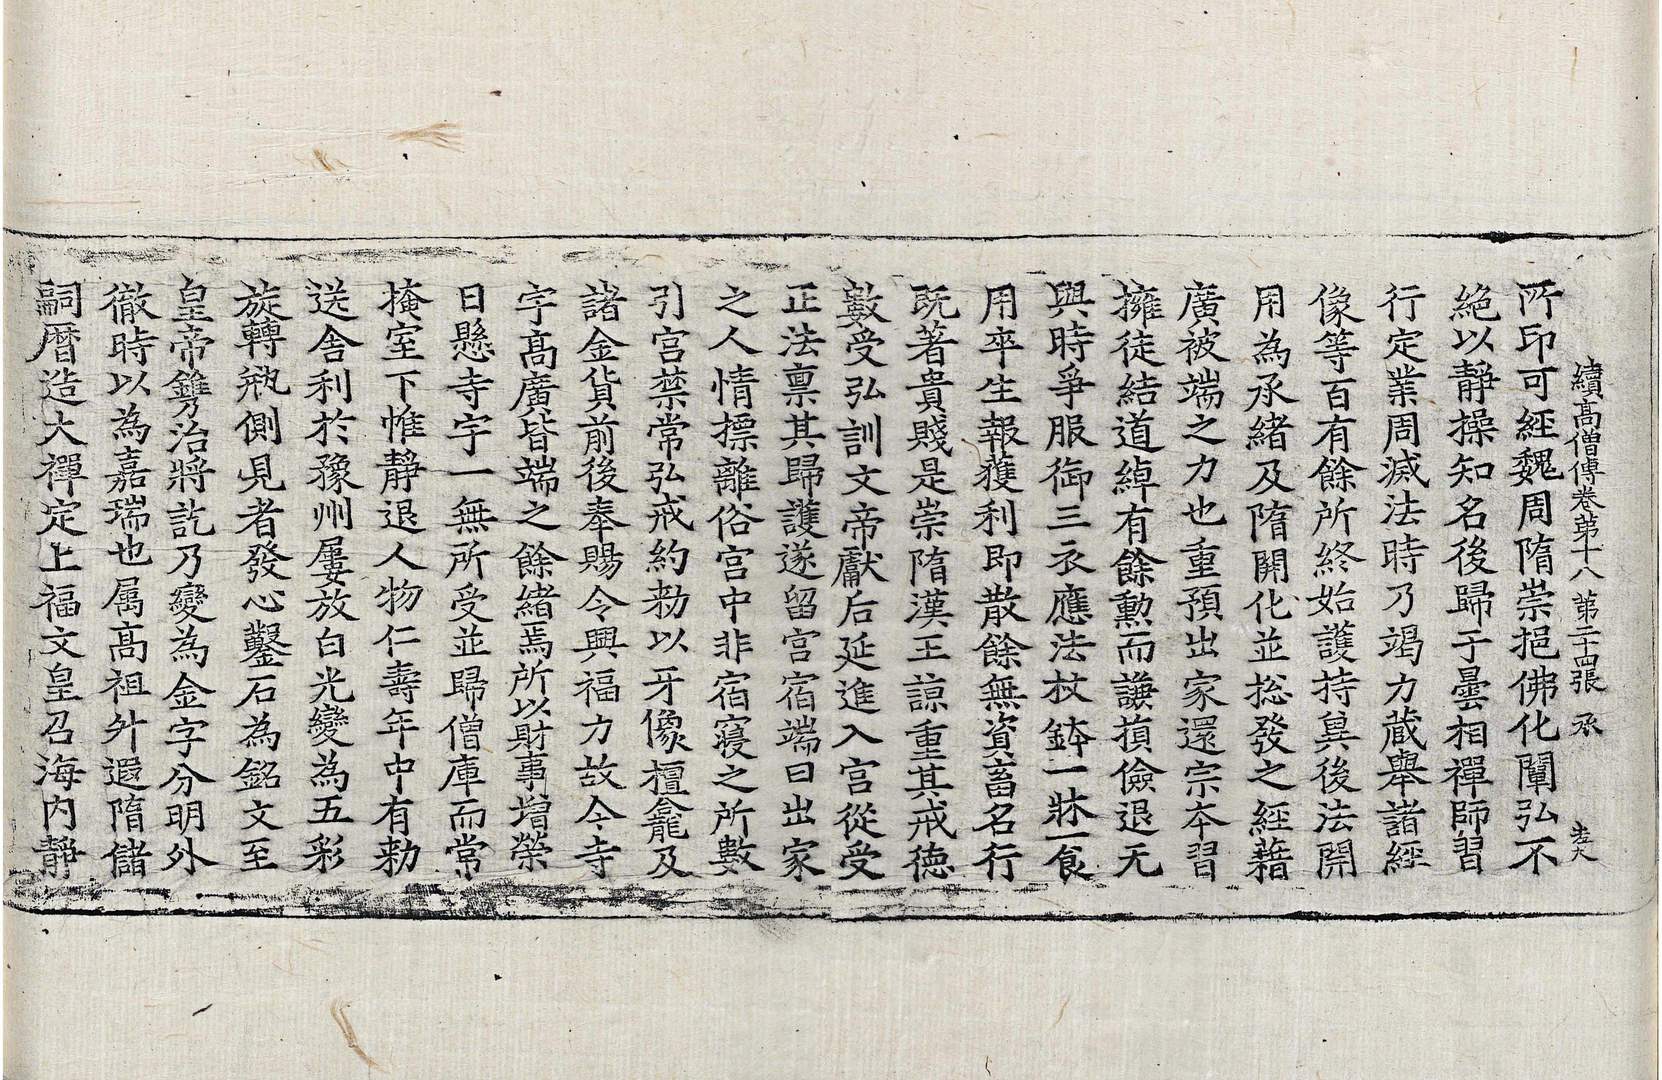 續高僧傳卷第十八 第二十四張 承
所印可經魏周隋崇挹佛化闡弘不
絕以靜操知名後歸于曇相禪師習
行定業周滅法時乃竭力藏舉諸經
像等百有餘所終始護持冀後法開
用為承緒及隋開化並捴發之經籍
廣被端之力也重預出家還宗本習
擁徒結道綽有餘勲而謙損儉退无
與時爭服御三衣應法杖鉢一牀一食
用卒生報獲利即散餘無資畜名行
既著貴賤是崇隋漢王諒重其戒徳
數受弘訓文帝獻后延進入宮從受
正法稟其歸護遂留宮宿端曰出家
之人情摽離俗宮中非宿寢之所數
引宮禁常弘戒約勑以牙像檀龕及
諸金貨前後奉賜令興福力故今寺
宇髙廣皆端之餘緒焉所以財事増榮
日懸寺宇一無所受並歸僧庫而常
掩室下帷靜退人物仁壽年中有勑
送舍利於豫州屢放白光變為五彩
旋轉瓶側見者發心鑿石為銘文至
皇帝鐫治將訖乃變為金字分明外
徹時以為嘉瑞也属髙祖升遐隋儲
嗣曆造大禪定上福文皇召海內靜